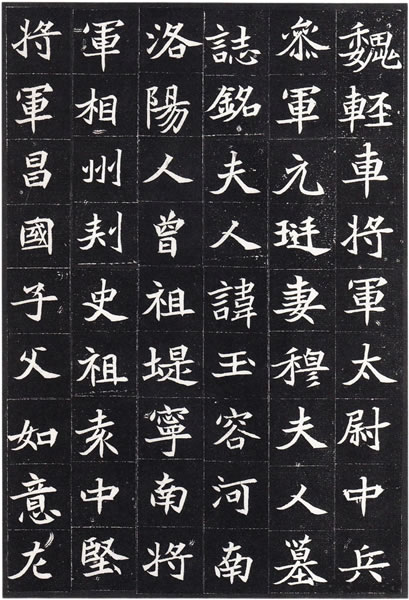 魏輕車將軍太尉中兵
叅軍元珽妻穆夫人墓
誌銘夫人諱玉容河南
洛陽人曾祖堤寧南將
軍相州刾史祖袁中堅
將軍昌國子父如意左